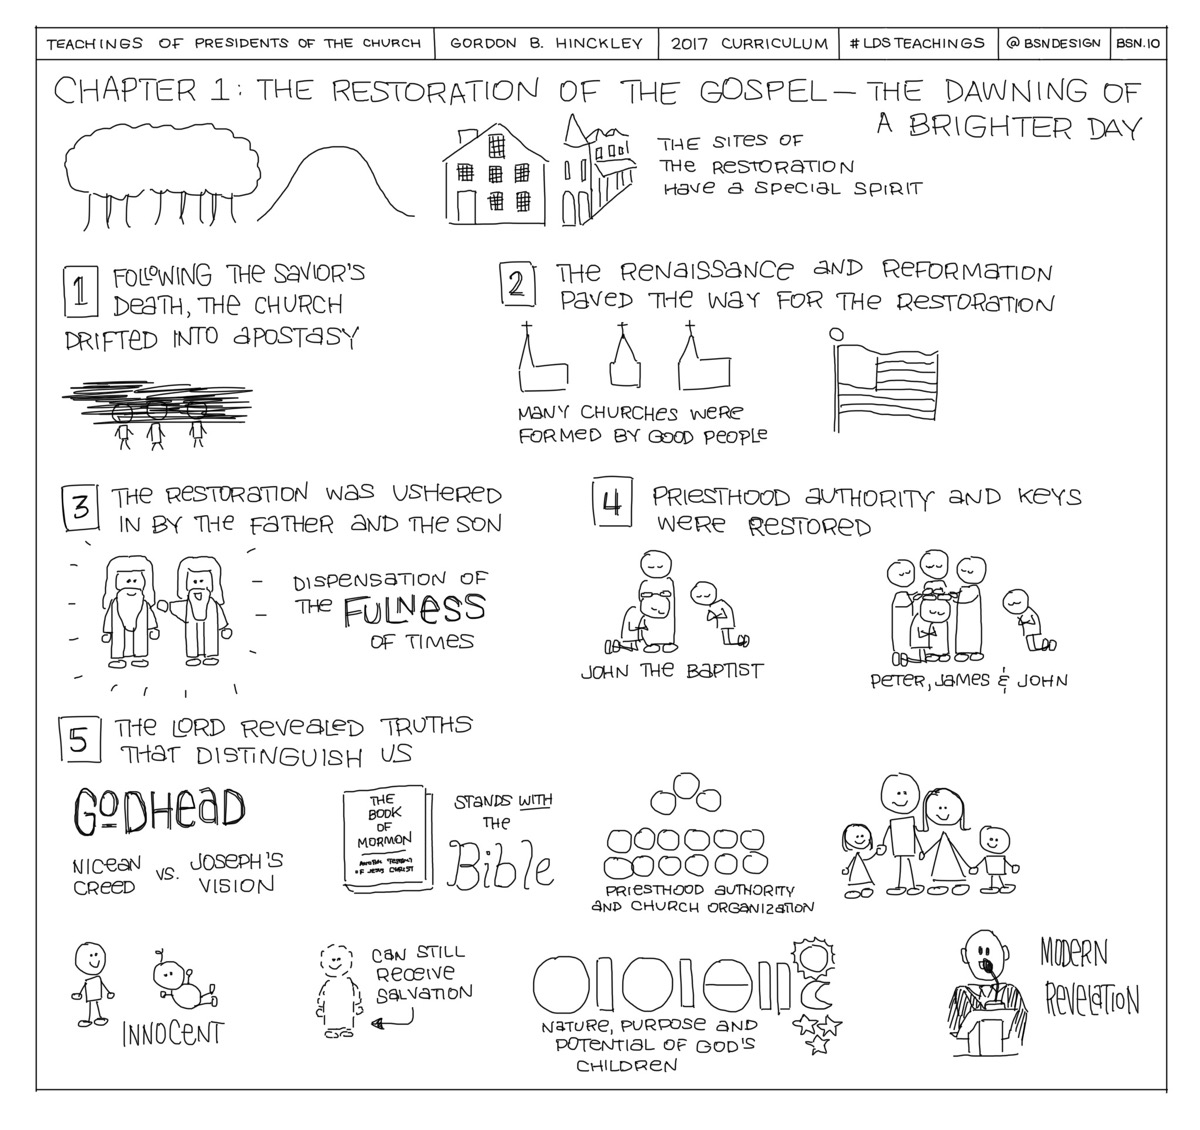 TEACHINGS OF PRESIDENTS OF THE CHURCH
GORDON B. HINCKLEY
2017 CURRICULUM
#LDSTEACHINGS
@BSNDESIGN
BSN.IO
CHAPTER 1: THE RESTORATION OF THE GOSPEL — THE DAWNING OF
A BRIGHTER DAY
THE SITES OF
THE RESTORATION
HAVE A SPECIAL SPIRIT
1 FOLLOWING THE SAVIOR'S
DEATH, THE CHURCH
DRIFTED INTO APOSTASY
2 THE RENAISSANCE AND REFORMATION
PAVED THE WAY FOR THE RESTORATION
MANY CHURCHES WERE
FORMED BY GOOD PEOPLE
3 THE RESTORATION WAS USHERED
IN BY THE FATHER AND THE SON
DISPENSATION OF
THE FULNESS
OF TIMES
4 PRIESTHOOD AUTHORITY AND KEYS
WERE RESTORED
JOHN THE BAPTIST
PETER, JAMES & JOHN
5 THE LORD REVEALED TRUTHS
THAT DISTINGUISH US
GODHEAD
NICEAN
CREED
VS.
JOSEPH'S
VISION
THE
BOOK
OF
MORMON
ANOTHER TESTAMENT
OF JESUS CHRIST
STANDS WITH
THE
Bible
PRIESTHOOD AUTHORITY
AND CHURCH ORGANIZATION
INNOCENT
CAN STILL
RECEIVE
SALVATION
NATURE, PURPOSE AND
POTENTIAL OF GOD'S
CHILDREN
MODERN
REVELATION